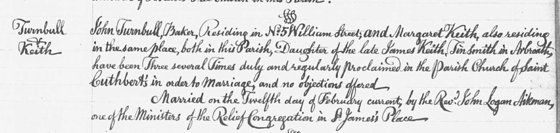 Turnbull
&
Keith
John Turnbull, Baker, Residing in No. 5 William Street; and Margaret Keith, also residing
in the same place, both in this Parish, Daughter of the late James Keith, Tinsmith in Arbroath,
have been Three several Times duly and regularly proclaimed in the Parish Church of Saint
Cuthberts in order to Marriage, and no objections offered
Married on the Twelfth day of February current, by the Revd. John Logan Aikman,
one of the Ministers of the Relief Congregation in St James's Place